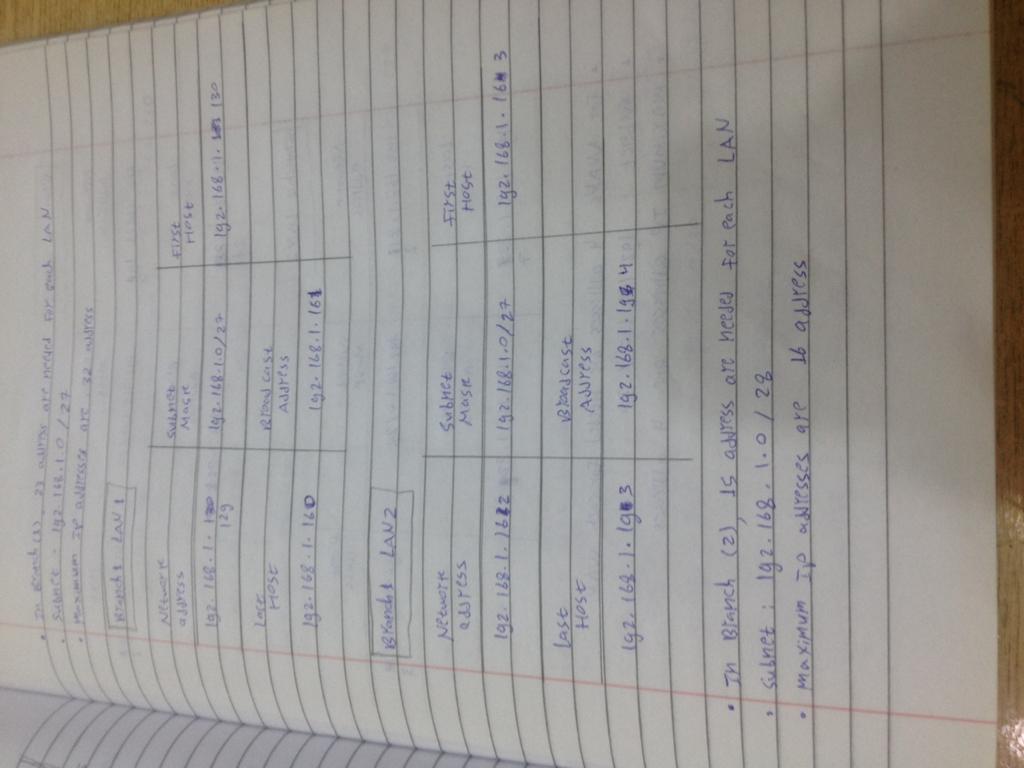 • In Branch (1), 23 address are need for each LAN
• Subnet : 192.168.1.0 / 27
• Maximum IP addresses are 32 address
Branch1 LAN1
Network address Subnet Masre First Host
192.168.1. 129 192.168.1.0/27 192.168.1. 130
Last Host Broadcast Address
192.168.1.160 192.168.1.161
Branch1 LAN2
Network address Subnet Masre First Host
192.168.1.162 192.168.1.0/27 192.168.1.163
Last Host Broadcast Address
192.168.1.193 192.168.1.194
• In Branch (2), 15 address are needes for each LAN
• Subnet : 192.168.1.0 / 28
• Maximum Ip addresses are 16 address